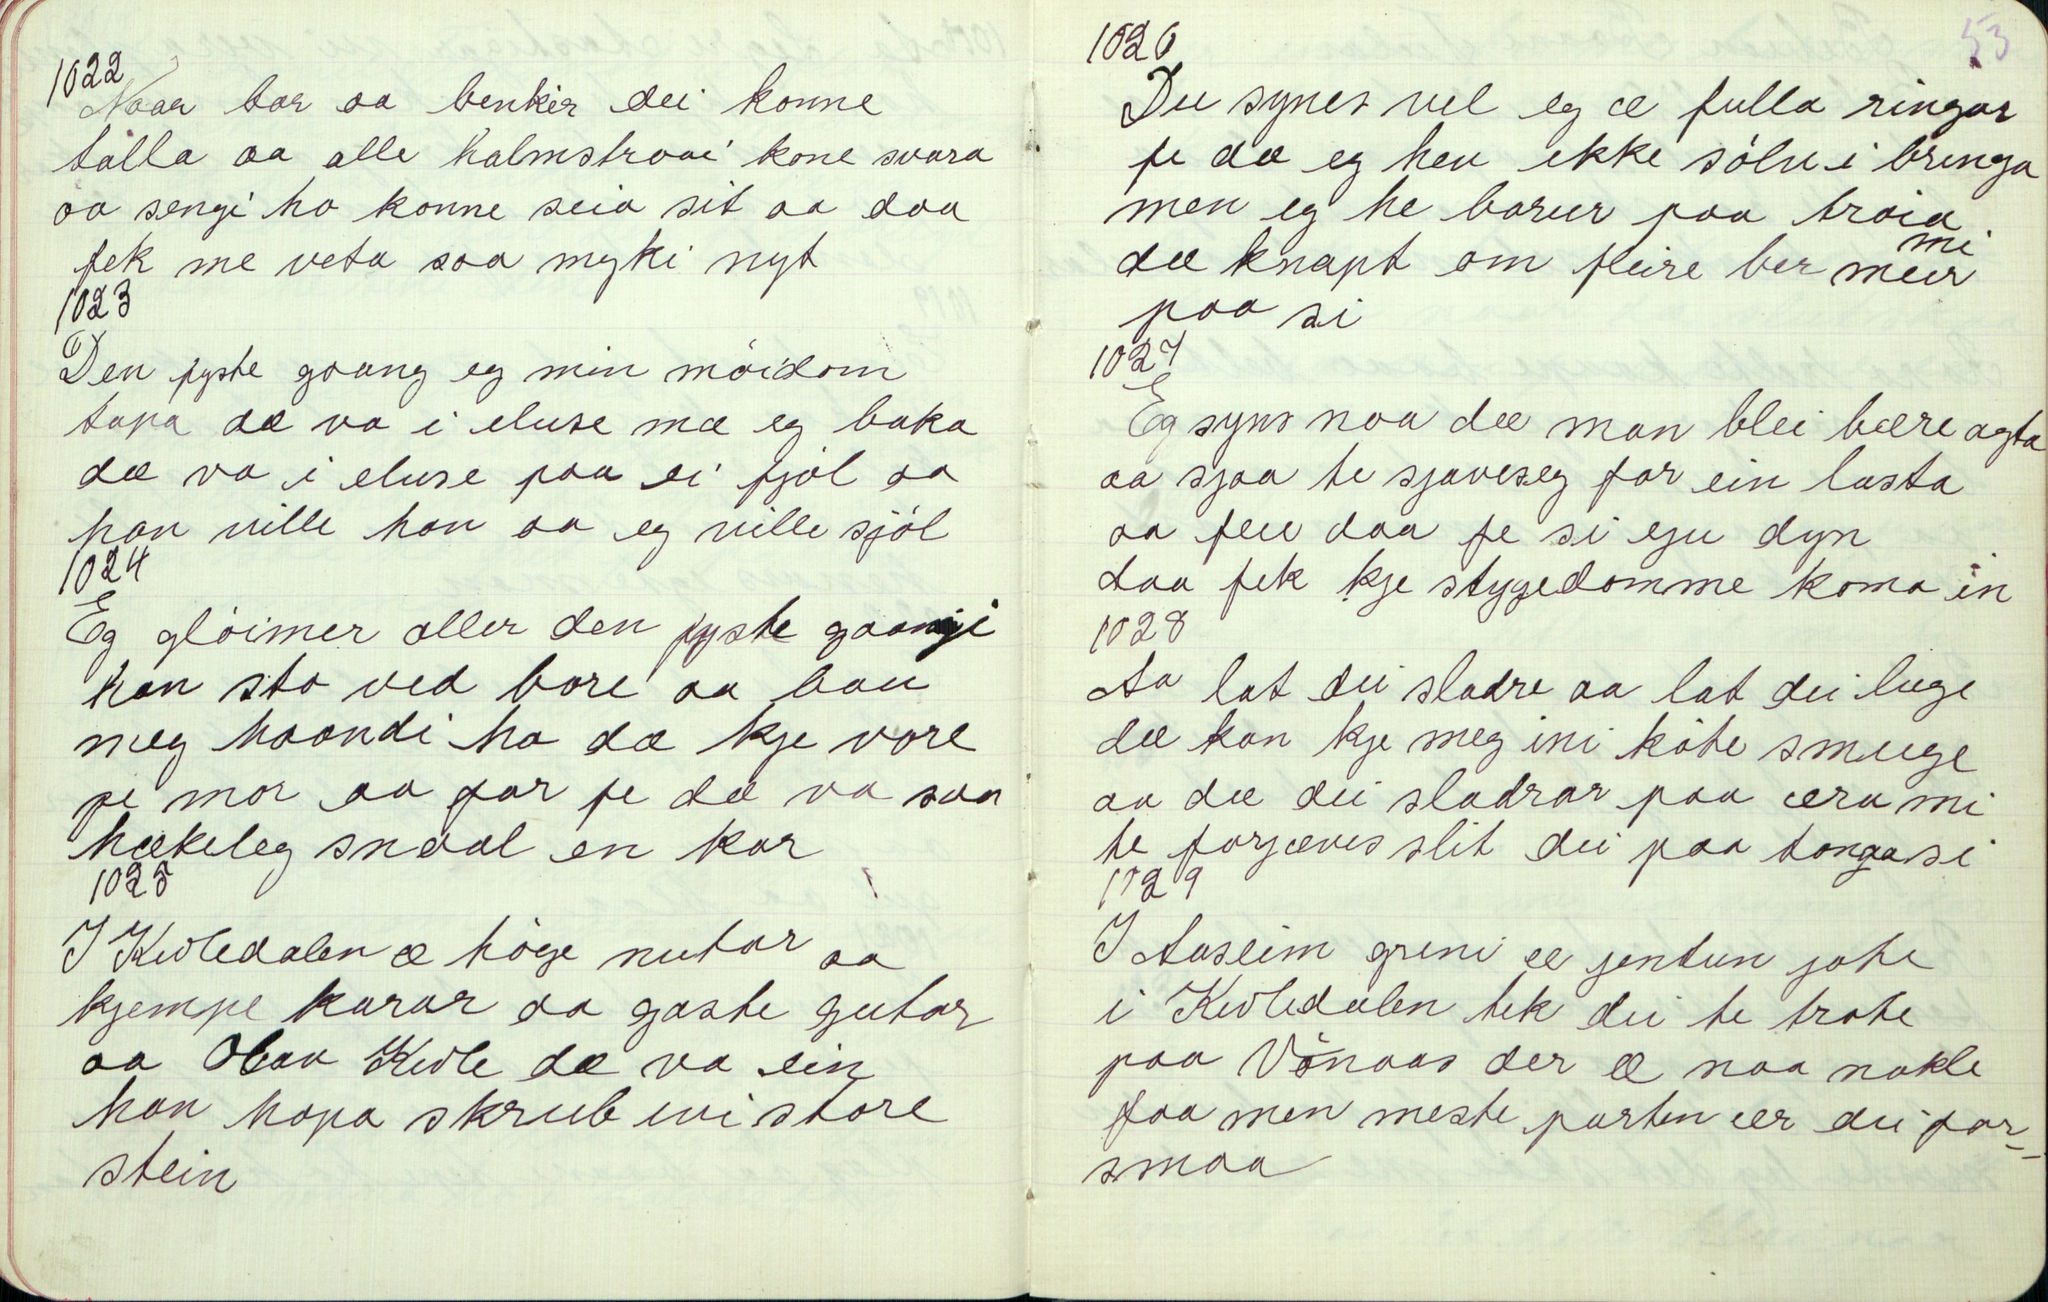 1022
Naar bor aa benkir dei konne
talla aa alle halmstraai kone svara
aa sengi ho konne seia sit aa daa
fek me veta saa myki nyt
1023
Den fyste goang eg min möidom
tapa dæ va i eluse mæ eg baka
dæ va i eluse paa ei fjöl aa
han ville han aa eg ville sjöl
1024
Eg glöimer aller den fyste goangi
han sto ved bore aa bau
meg haandi ho dæ kje vare
fe mor aa far fe dæ va saa
hækeleg snaal en kar
1025
I Kivledalen æ höge nutar aa
kjempe karar aa gaste gutar
aa Olav Kivle dæ va ein
han hopa skrub ivi store
stein
1026
53
Du synes vel eg æ fulla ringar
fe dæ eg hev ikke sölv i bringa
men eg he barur paa tröia
mi
dæ knapt om fleire ber meir
paa si
1027
Eg syns naa dæ man blei bære agta
aa sjaa te sjaves eg for ein lasta
aa feu daa fe si egu dyn
daa fek kje stygedomme koma in
1028
Aa lat dei sladre aa lat dei luge
dæ kan kje meg ini köte smuge
aa dæ dei sladrar paa æra mi
te forjæves slit dei paa tonga si
1029
I Aaseim greni æ jentun jote
i Kivledalen tek dei te trote
paa Vönaas der æ naa nokle
faa men meste parten ær dei for-
smaa